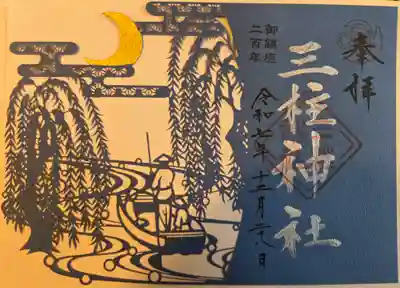 奉拝
三柱神社
御鎮座
二百年
令和七年十二月二十八日